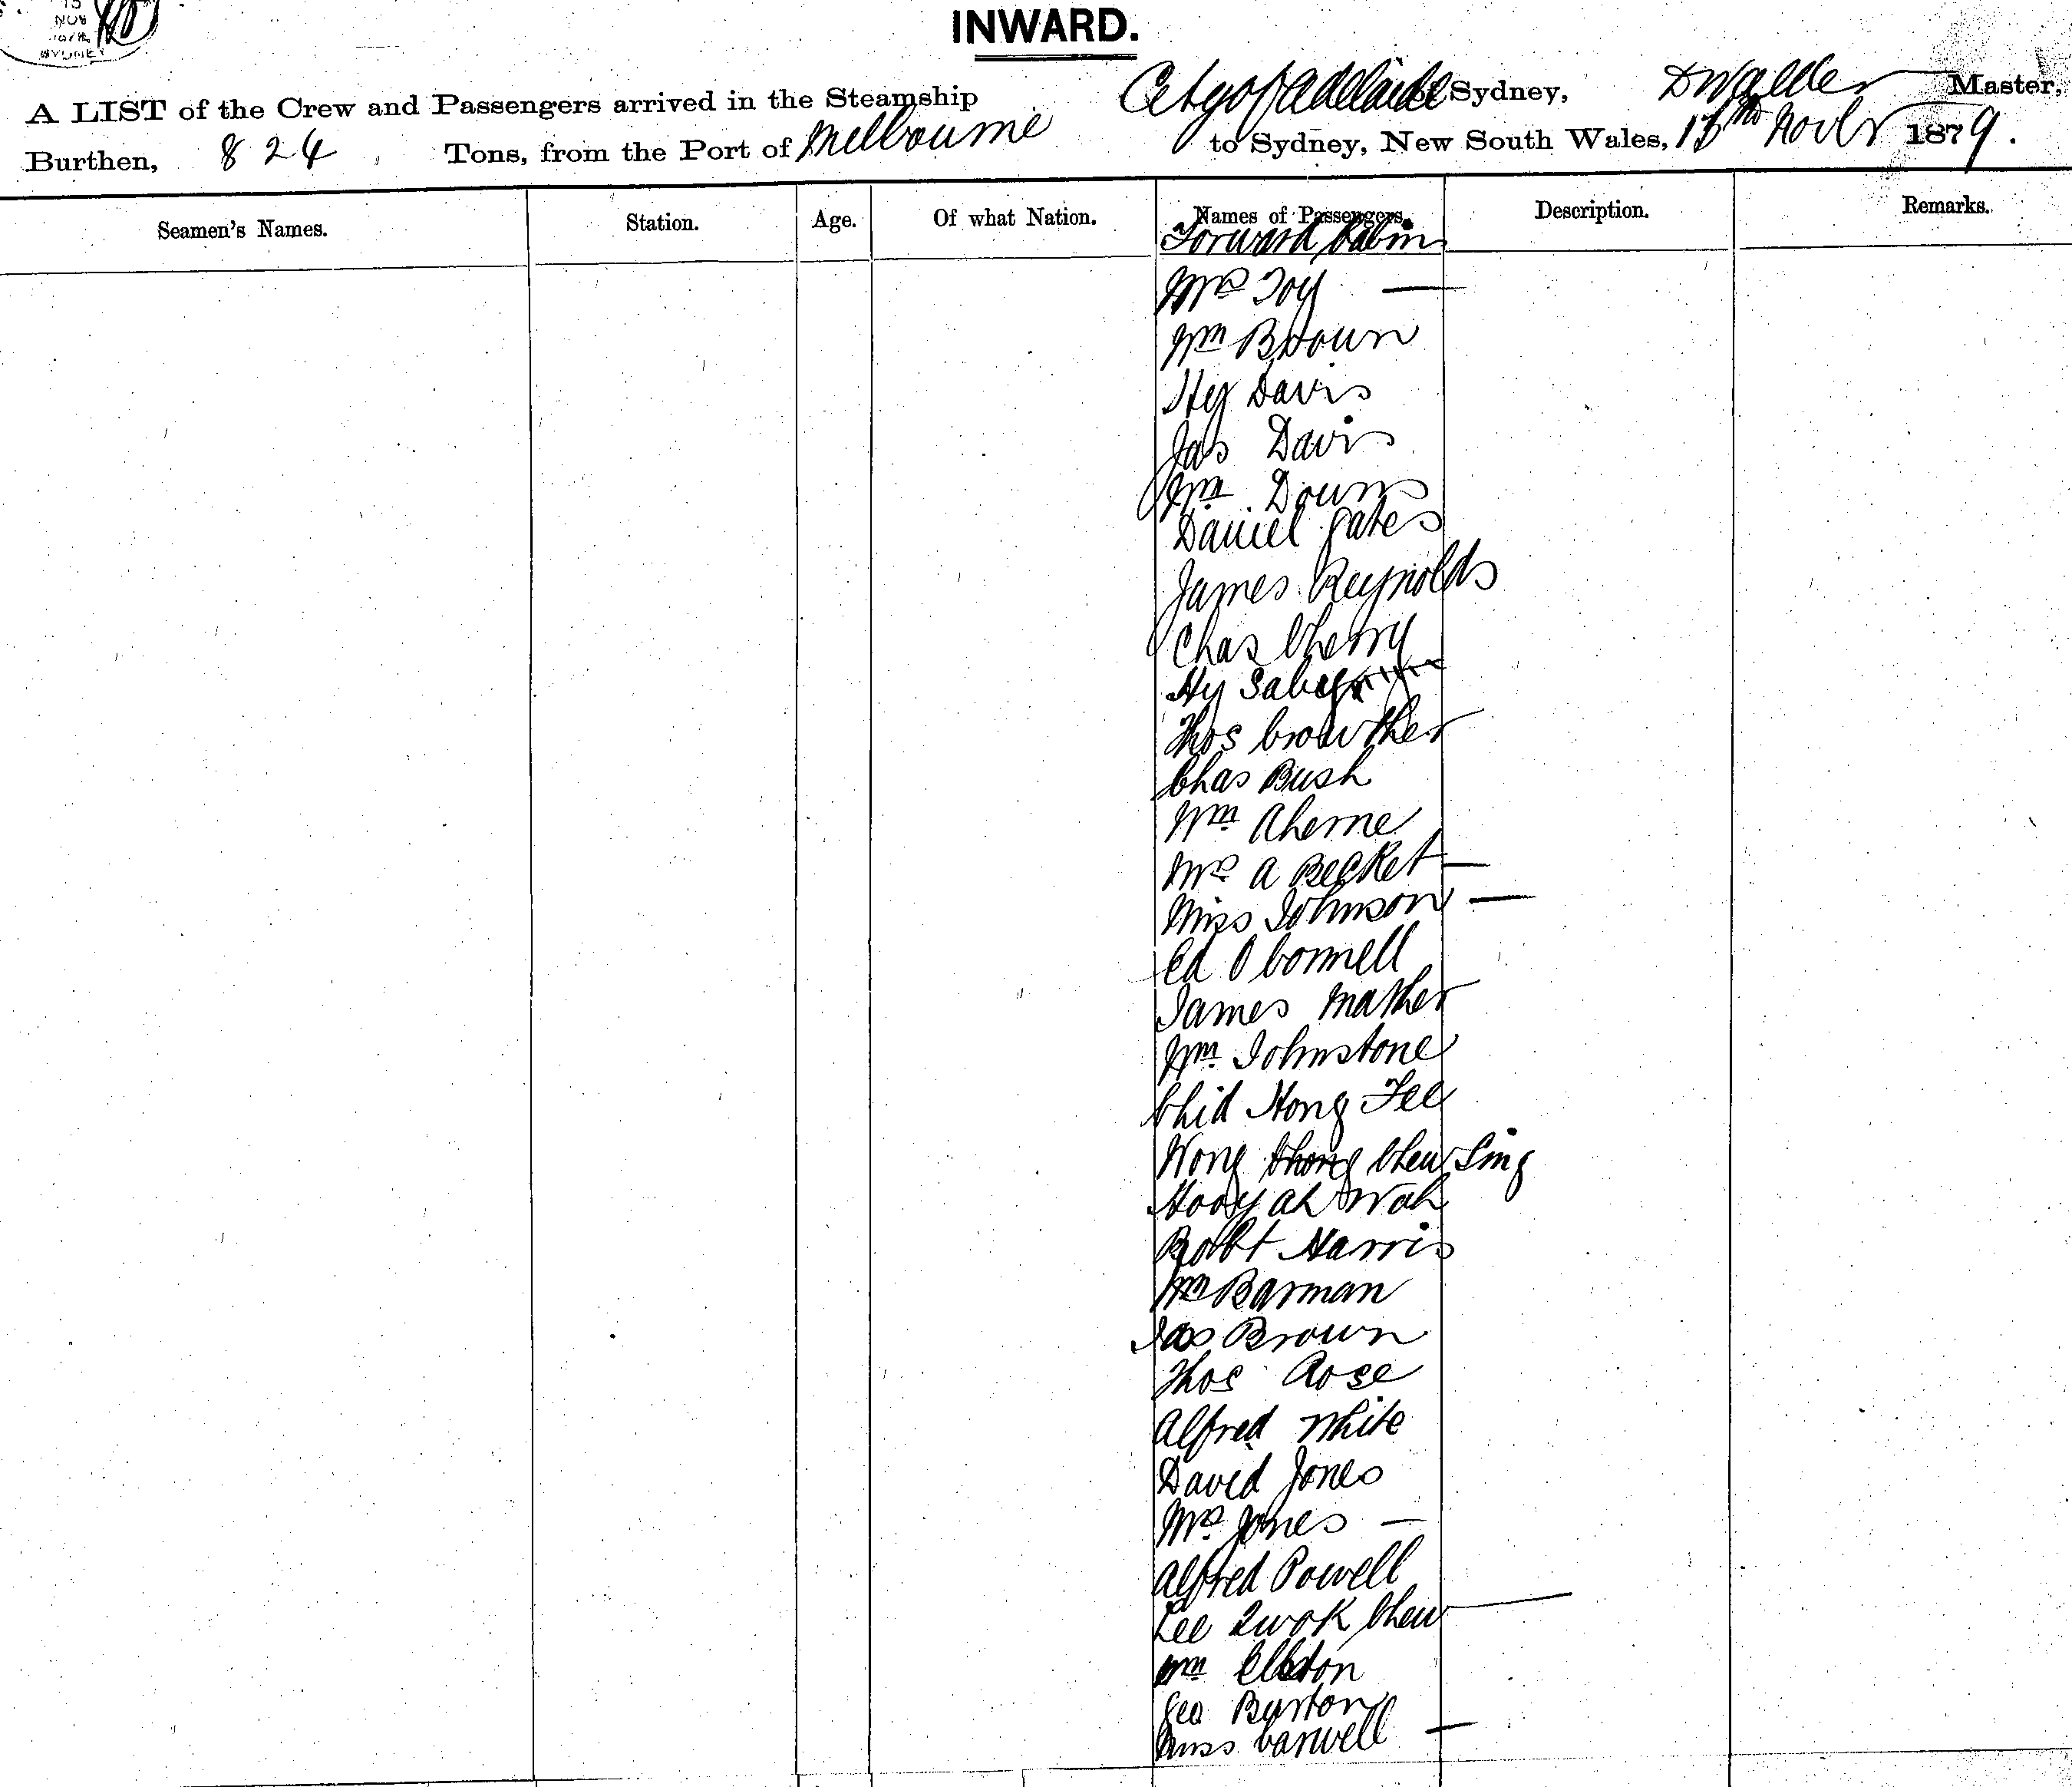 15
NOV
SYDNEY
INWARD.
A LIST of the Crew and Passengers arrived in the Steamship City of Adelaide of Sydney, D Walker Master,
Burthen, 824 Tons, from the Port of Melbourne to Sydney, New South Wales, 15th Novbr 1879.
Seamen's Names. Station. Age. Of what Nation. Names of Passengers. Description. Remarks.
Forward Cabin
Mrs Toy —
Wm Brown
Hy Davis
Jas Davis
Wm Downs
Daniel Gates
James Reynolds
Chas Cherry
Hy
Thos Crowther
Chas Bush
Wm Aherne
Mrs A Becket —
Miss Johnson —
Ed O Connell
James Mather
Wm Johnstone
Chid Hong Fee
Wong Chong Chew Sing
Hooy Ah Wah
Robt Harris
Wm Barman
Jas Brown
Thos Rose
Alfred White
David Jones
Mrs Jones —
Alfred Powell
Lee Quok Chew
Wm
Geo Burton
Miss Carwell —